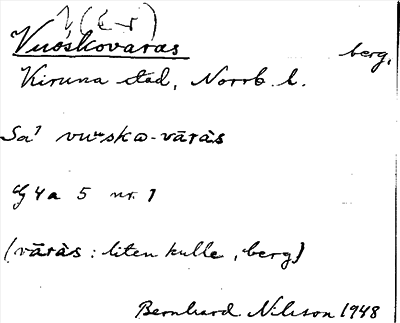 Vuoskovaras berg,
Kiruna stad, Norrb. l.
Sa¹ vuᵒsko-vāràs
4a 5 nr. 1
(vāràs: liten kulle, berg)
Bernhard Nilsson 1948